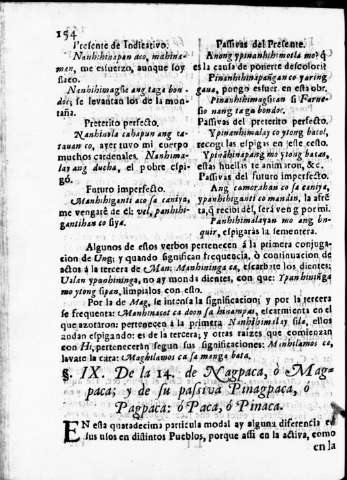 154
Presente de Indicativo.
Nanhihinapan aco, mahina-
men, me esfuerzo, aunque soy
flaco.
Nanhihimagsic ang taga bon-
doc; se levantan los de la mon-
taña.
Preterito perfecto.
Nanhivola cahapun ang ca-
tauan co, ayer tuvo mi cuerpo
muchos cardenales. Nanhima-
lay ang ducha, el pobre espi-
gó.
Futuro imperfecto.
Manhihiganti aco sa caniya,
me vengaré de él: vel, panhihi-
gantihan co siya.
Passivas del Presente.
Anong ypinanhihimotla mo? q̃
es la causa de ponerte descolorií
Pinanhihinapañgan co yaring
gaua, pongo esfuer. en esta obr.
Pinanhihimagsican si Farne-
sio nang taga bondoc.
Passivas del preterito perfecto.
Ypinanhimalay co ytong bacol,
recogi las espigas en este cesto.
Ypinãhinapang mo ytong batas,
estas huellas te animaron, &c.
Passivas del futuro imperfecto.
Ang camorahan co sa caniya,
ypanhihiganti co mandin, la afrẽ
ta, q̃ recibi del, será vengpor mi.
Panhihimalayan mo ang bn-
guir, espigarás la sementera.
Algunos de estos verbos pertenecen á la primera conjugac-
ion de Ung; y quando significan frequencia, ò continuacion de
actos á la tercera de Man: Manhininga ca, escarbite los dientes;
Ualan ypanhininga, no ay monda dientes, con que: Ypanhininga
mo ytong sipan, limpialos con esto.
Por la de Mag, se intensa la significacion; y por la tercera
se frequenta: Manhinasat ca doon sa hinampas, escarmienta en el
que azotaron: pertenecen á la primera Nanhihimalay sila, ellos
andan espigando: es de la tercera; y otras raizes que comienzan
con Hi, pertenecerán segun sus significaciones: Manhilamos ca,
lavate la cara: Maghilamos ca sa manga bata.
§. IX. De la 14. de Nagpaca, ò Mag-
paca; y de su passiva Pinagpaca, ò
Pagpaca: ó Paca, ó Pinaca.
EN esta quatadecima particula modal ay alguna diferencia en
sus usos en distintos Pueblos, porque assi en la activa, como
en la